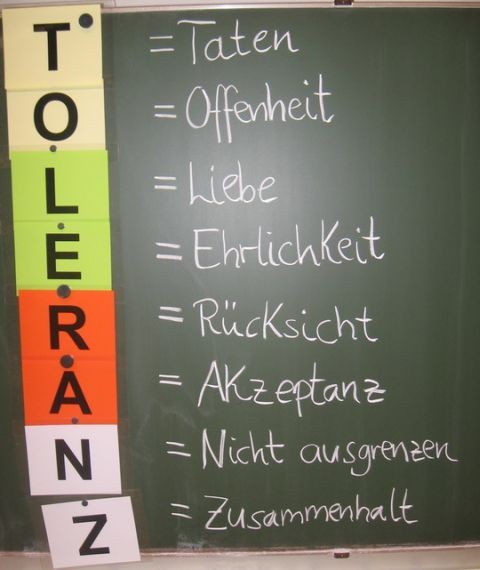 T = Taten
O = Offenheit
L = Liebe
E = EhrlichKeit
R = RücKsicht
A = AKzeptanz
N = Nicht ausgrenzen
Z = Zusammenhalt